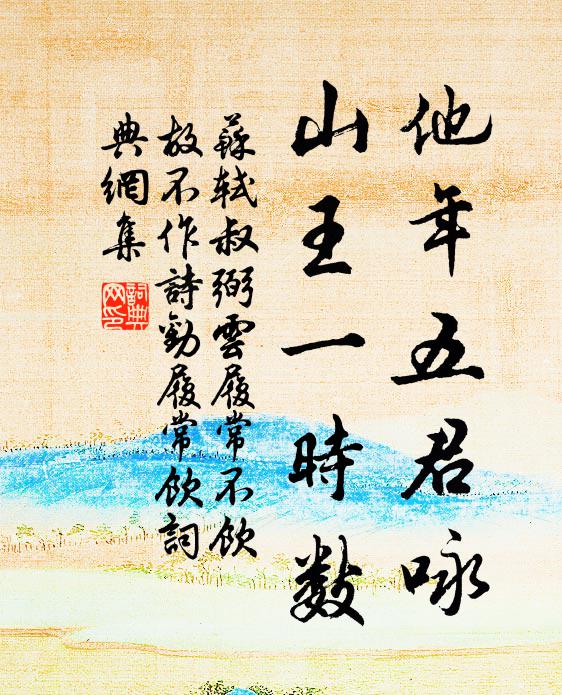 他年五君咏
山王一時數
蘇軾叔弼雲履常不飲
故不作詩勸履常飲詞
典網集
詞典
网印